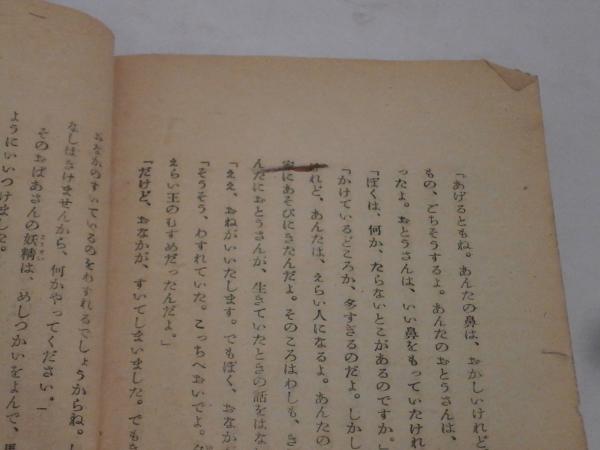 「あげるともね。あんたの鼻は、おかしいけれど、
もの、ごちそうするよ。あんたのおとうさんは、
ったよ。おとうさんは、いい鼻をもっていたけれ
「ぼくは、何か、たらないとこがあるのですか。」
「かけているどころか、多すぎるのだよ。しかし
けれど、あんたは、えらい人になるよ。あんたの
家にあそびにきたんだよ。そのころはわしも、き
んだにおとうさんが、生きていたときの話をはな
「ええ、おねがいいたします。でもぼく、おなか
「そうそう、わすれていた。こっちへおいでよ。
えらい王のむすめだったんだよ。」
「だけど、おなかが、すいてしまいました。でも
おなかのすいているのをわすれるでしょうからね。
なしはきけませんから、何かやってください。」
そのおばあさんの妖精は、めしつかいをよんで、
ようにいいつけました。